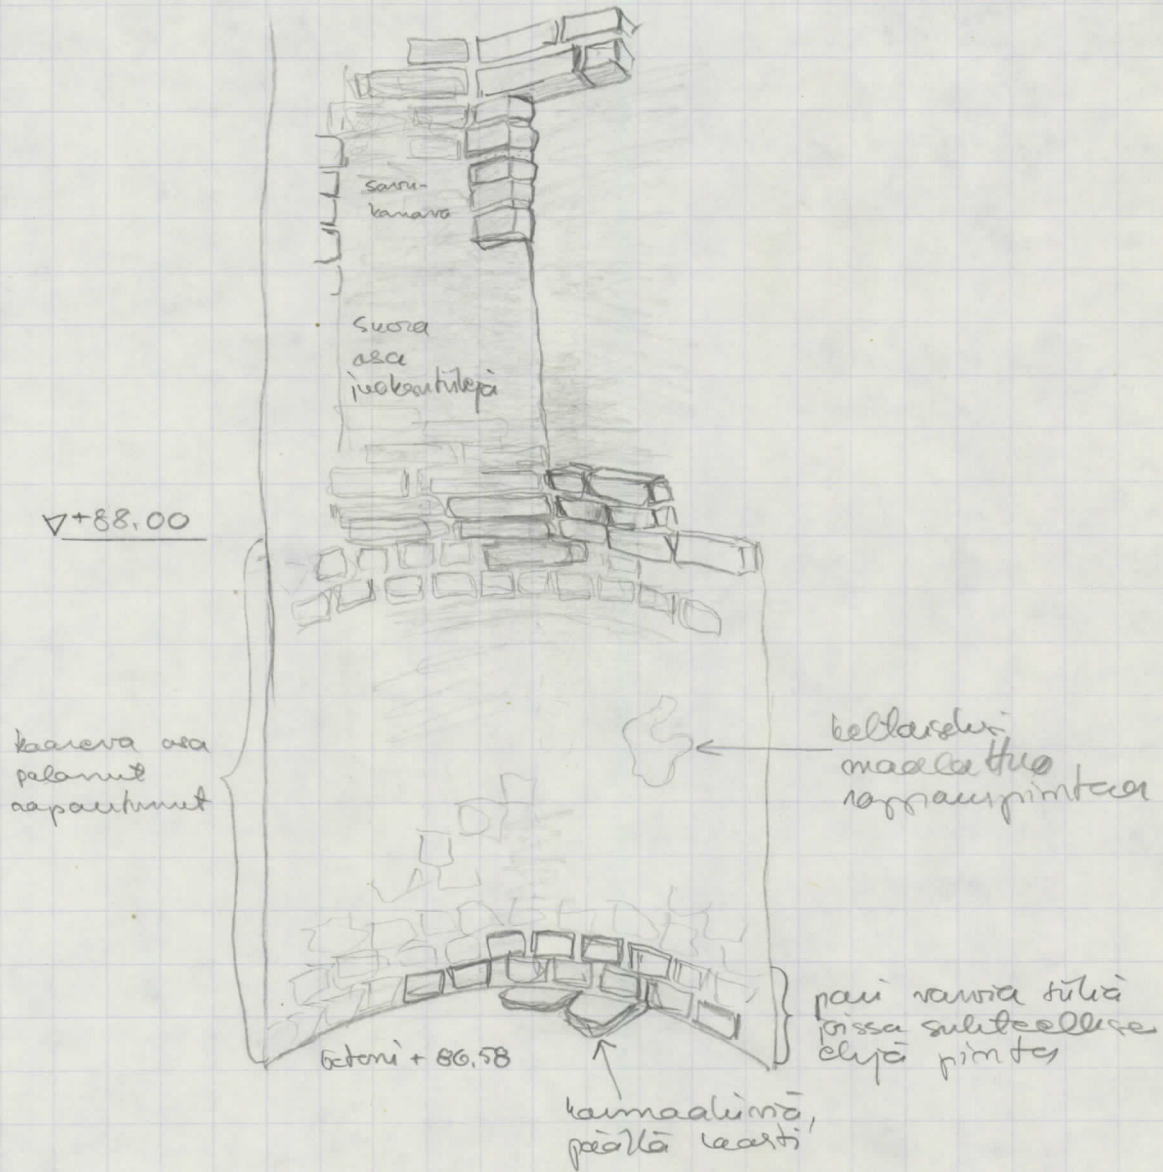 savu-
kanava
suora
asa
juoksutiilejä
▽+88.00
kaareva osa
palanut
rapautunut
keltaiseksi
maalattua
rappauspintaa
pari varvia tiiliä
joissa suhteellisen
ehjä pinta
betoni + 86,58
harmaakiviä,
päällä laasti